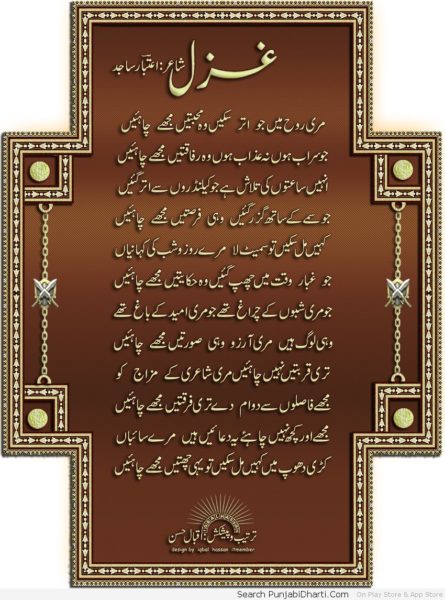 غزل شاعر: اعتبار ساجد
مری روح میں جو اتر سکیں وہ محبتیں مجھے چاہئیں
جو سراب ہوں نہ عذاب ہوں وہ رفاقتیں مجھے چاہئیں
انہیں ساعتوں کی تلاش ہے جو کیلنڈروں سے اتر گئیں
جو سمے کے ساتھ گزر گئیں وہی فرصتیں مجھے چاہئیں
کہیں مل سکیں تو سمیٹ لا مرے روز و شب کی کہانیاں
جو غبار وقت میں چھپ گئیں وہ حکایتیں مجھے چاہئیں
جو مری شبوں کے چراغ تھے جو مری امید کے باغ تھے
وہی لوگ ہیں مری آرزو وہی صورتیں مجھے چاہئیں
تری قربتیں نہیں چاہئیں مری شاعری کے مزاج کو
مجھے فاصلوں سے دوام دے تری فرقتیں مجھے چاہئیں
مجھے اور کچھ نہیں چاہئے یہ دعائیں ہیں مرے سائباں
کڑی دھوپ میں کہیں مل سکیں تو یہی چھتیں مجھے چاہئیں
ترتیب و پیشکش: اقبال حسن
design by iqbal hassan
Search PunjabiDharti.Com On Play Store & App Store